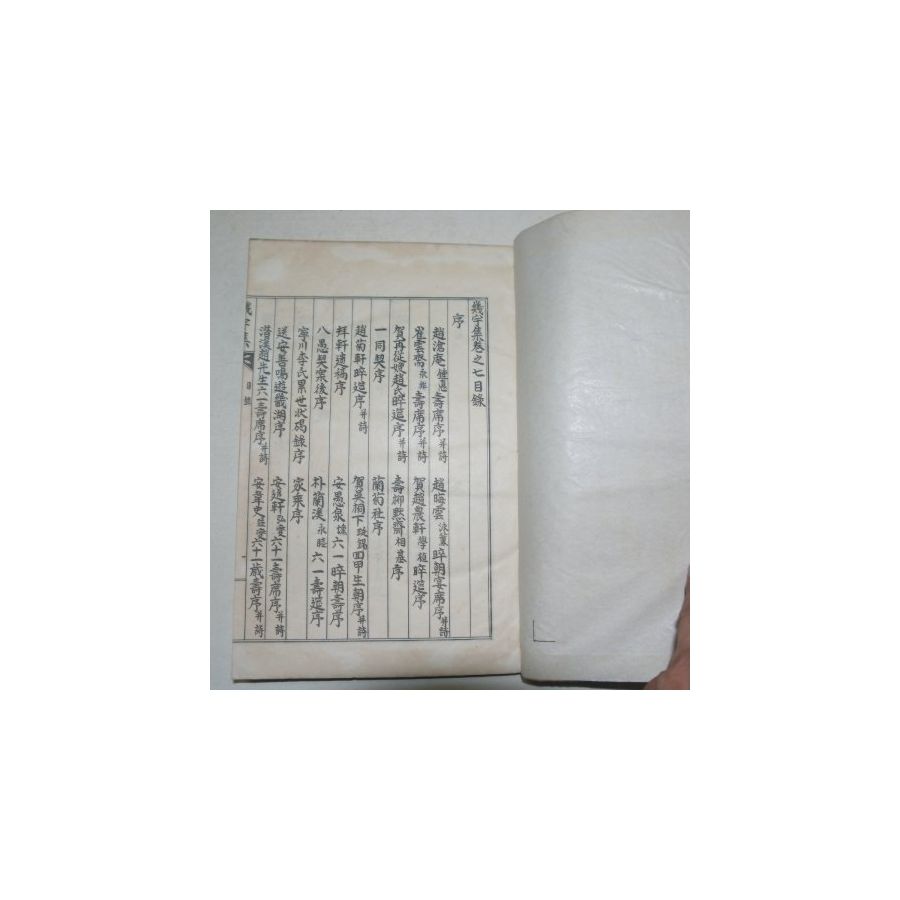 幾宇集卷之七目錄
序
趙滄庵鍾惪壽席序并詩
趙晦雲泳篆晬朝宴席序并詩
崔雲齋永壽席序并詩
賀趙農軒學植晬筵序
賀再從嫂趙氏晬筵序并詩
壽柳默齋相基序
一同契序
蘭菊社序
趙菊軒晬筵序并詩
賀吳祠下四甲生朝序并詩
拜軒遺稿序
安愚泉六一晬朝壽序
八愚契案後序
朴蘭溪永六一壽筵序
寧川李氏累世狀碣錄序
家乘序
送安善鳴遊畿湖序
安逸軒弘燮六十一壽席序并詩
潛溪趙先生六一壽席序并詩
安韋史廷燮六十一歲壽序并詩
幾宇集 目錄